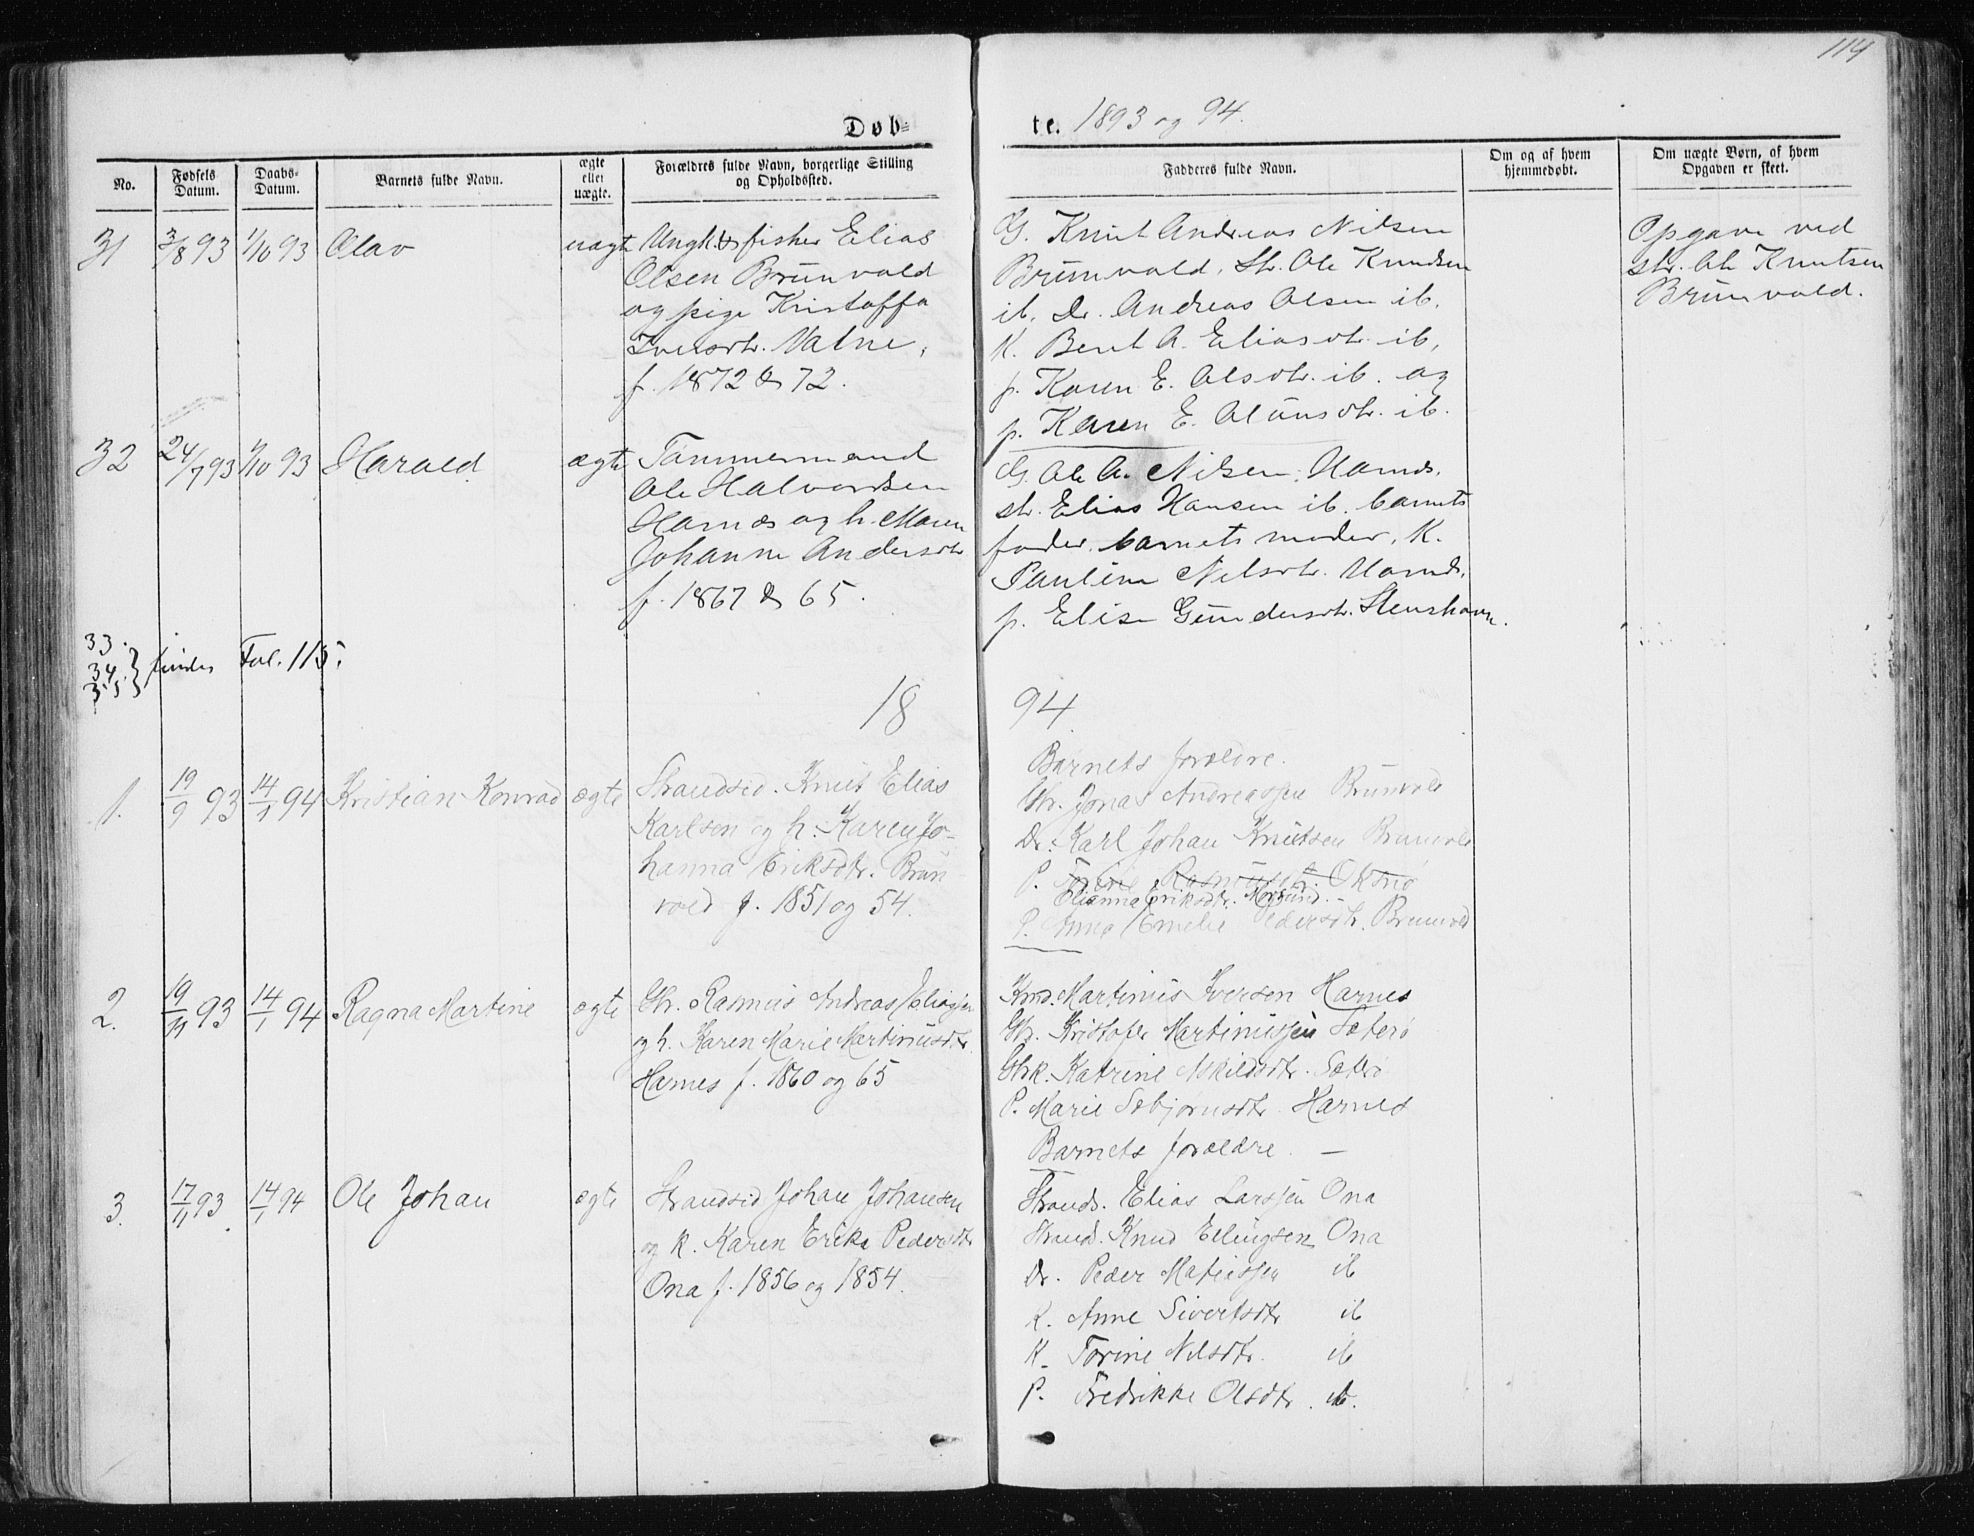 114
Døb=
te. 1893 og 94.
No.
Fødsels Datum.
Daabs-Datum.
Barnets fulde Navn.
ægte eller uægte.
Forældres fulde Navn, borgerlige Stilling og Opholdssted.
Fadderes fulde Navn.
Om og af hvem hjemmedøbt.
Om uægte Børn, af hvem Opgaven er skeet.
31 3/8 93 1/10 93 Olav uægte Ungk. & fisker Elias
Olsen Brunvold
og pige Kristoffa
Iversdtr. Vatne,
f. 1872 & 72.
G. Knut Andreas Nilsen
Brunvold, Str. Ole Knudsen
ib. Dr. Andreas Olsen ib.
K. Berit A. Eliasdtr. ib,
p. Karen E. Olsdtr. ib. og
p. Karen E. Olausdtr. ib.
Opgave ved
str. Ole Knutsen
Brunvold.
32 24/7 93 1/10 93 Harald ægte Tømmermand
Ole Halvordsen
Harnæs og h. Maren
Johanne Andersdtr
f. 1867 & 65.
G. Ole A. Nilsen, Harnæs.
str. Elias Hansen ib. barnets
fader, barnets moder, K.
Pauline Nilsdtr. Harnæs,
p. Elise Gundersdtr. Stenshavn.
33.
34. } findes Fol. 115.
35
18 94
1. 19/9 93 14/1 94 Kristian Konrad ægte Strandsid. Knut Elias
Karlsen og h. Karen Jo-
hanna Eriksdtr. Brun
vold f. 1851 og 54.
Barnets forældre.
Gbr. Jonas Andreassen Brunvold
Dr. Karl Johan Knutsen Brunvold
P. Rasmusdt Oksnø
Elianna Eriksdtr. Magsund.
P. Anna Emelie Pedersdtr. Brunvold
2. 19/11 93 14/1 94 Ragna Martine ægte Gbr. Rasmus Andreas Eliassen
og h. Karen Marie Martinusdtr.
Harnes f. 1860 og 65
Kmd. Martinus Iversen Harnes
Gbr. Kristofer Martinussen Sæterø
Gbrk. Katrine Askildsdtr. Sæterø
P. Marie Sæbjørnsdtr Harnes
Barnets forældre. —
3. 17/11 93. 14/1 94 Ole Johan ægte Strandsid Johan Johansen
og k. Karen Erika Pedersdtr
Ona f. 1856 og 1854.
Strands. Elias Larssen Ona
Strand. Knud Ellingsen Ona
Dr. Peder Matiassen ib
K. Anne Sivertsdtr ib
K. Torine Nilsdtr. ib
P. Fredrikke Olsdtr. ib.